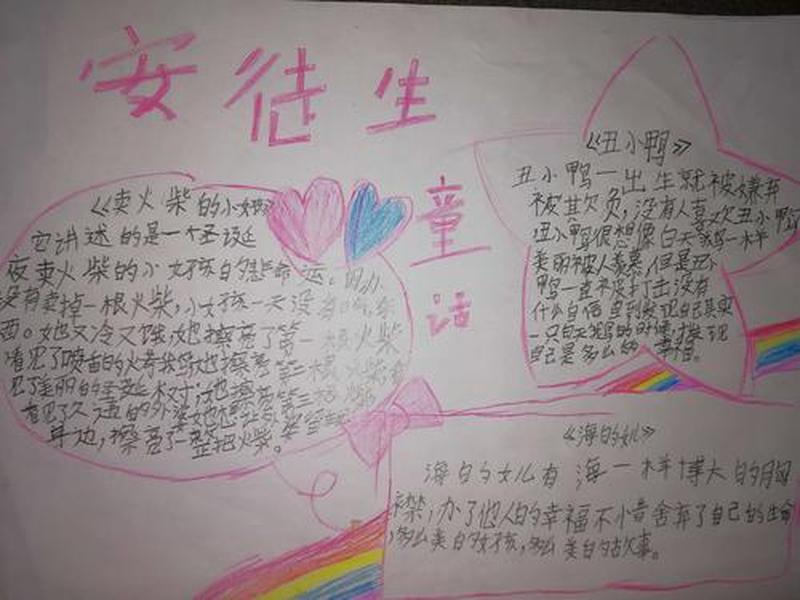 安徒生
童
话
《卖火柴的小女孩》
它讲述的是一个圣诞
夜卖火柴的小女孩的悲命运。因为
没有卖掉一根火柴,小女孩一天没有吃东
西。她又冷又饿,她擦亮了第一根火柴
看见了喷香的火
她擦亮第二根火柴看
见了美丽的圣诞树,她擦亮第三根火柴
看见了久违的外婆她想让外婆留在
耳边,擦亮了一整把火柴。
《丑小鸭》
丑小鸭一出生就被嫌弃
被其欠负,没有人喜欢丑小鸭
丑小鸭很想像白天鹅一样
美丽被人羡慕,但是丑小
鸭一直被打击没有
什么自信直到发现自己其实
一只白天鹅的时候,才发现
自己是多么的幸福。
《海的女儿》
海的女儿有海一样博大的胸
襟,为了他人的幸福不惜舍弃了自己的生命
,多么美的女孩,多么美的故事。